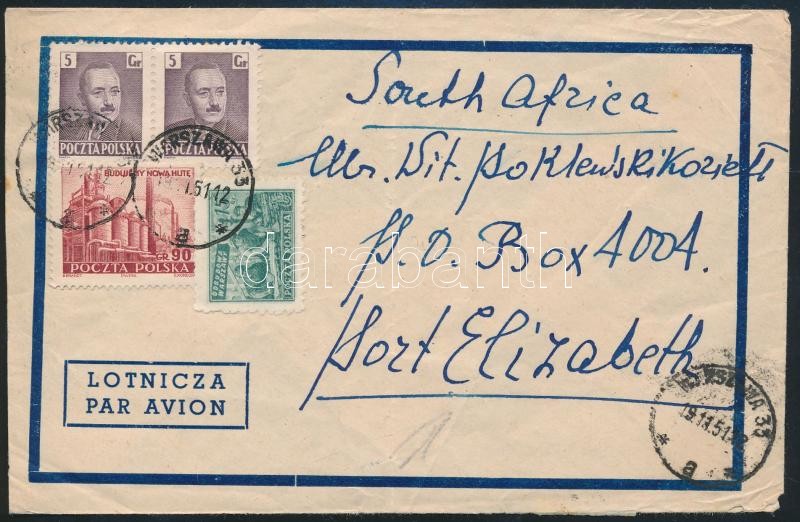 5 Gr 5 Gr
POCZTA POLSKA POCZTA POLSKA
WARSZAWA 33
BUDUJEMY NOWĄ HUTĘ
GR. 90
POCZTA POLSKA
POCZTA POLSKA
ODBUDOWA WARSZAWY
South Africa
Mr. Wit.
P.O. Box 4004.
Port Elizabeth
LOTNICZA
PAR AVION
WARSZAWA 33
19.11.51.12
a
darabanth